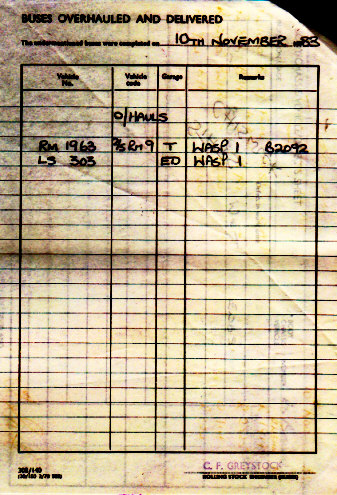 BUSES OVERHAULED AND DELIVERED
The undermentioned buses were completed on 10TH NOVEMBER 1983
Vehicle No. Vehicle code Garage Remarks
O/HAULS
RM 1963 2/5 RM 9 T WASP 1 B2092
LS 303 ED WASP 1
C. F. GREYSTOCK
ROLLING STOCK ENGINEER (BUSES)